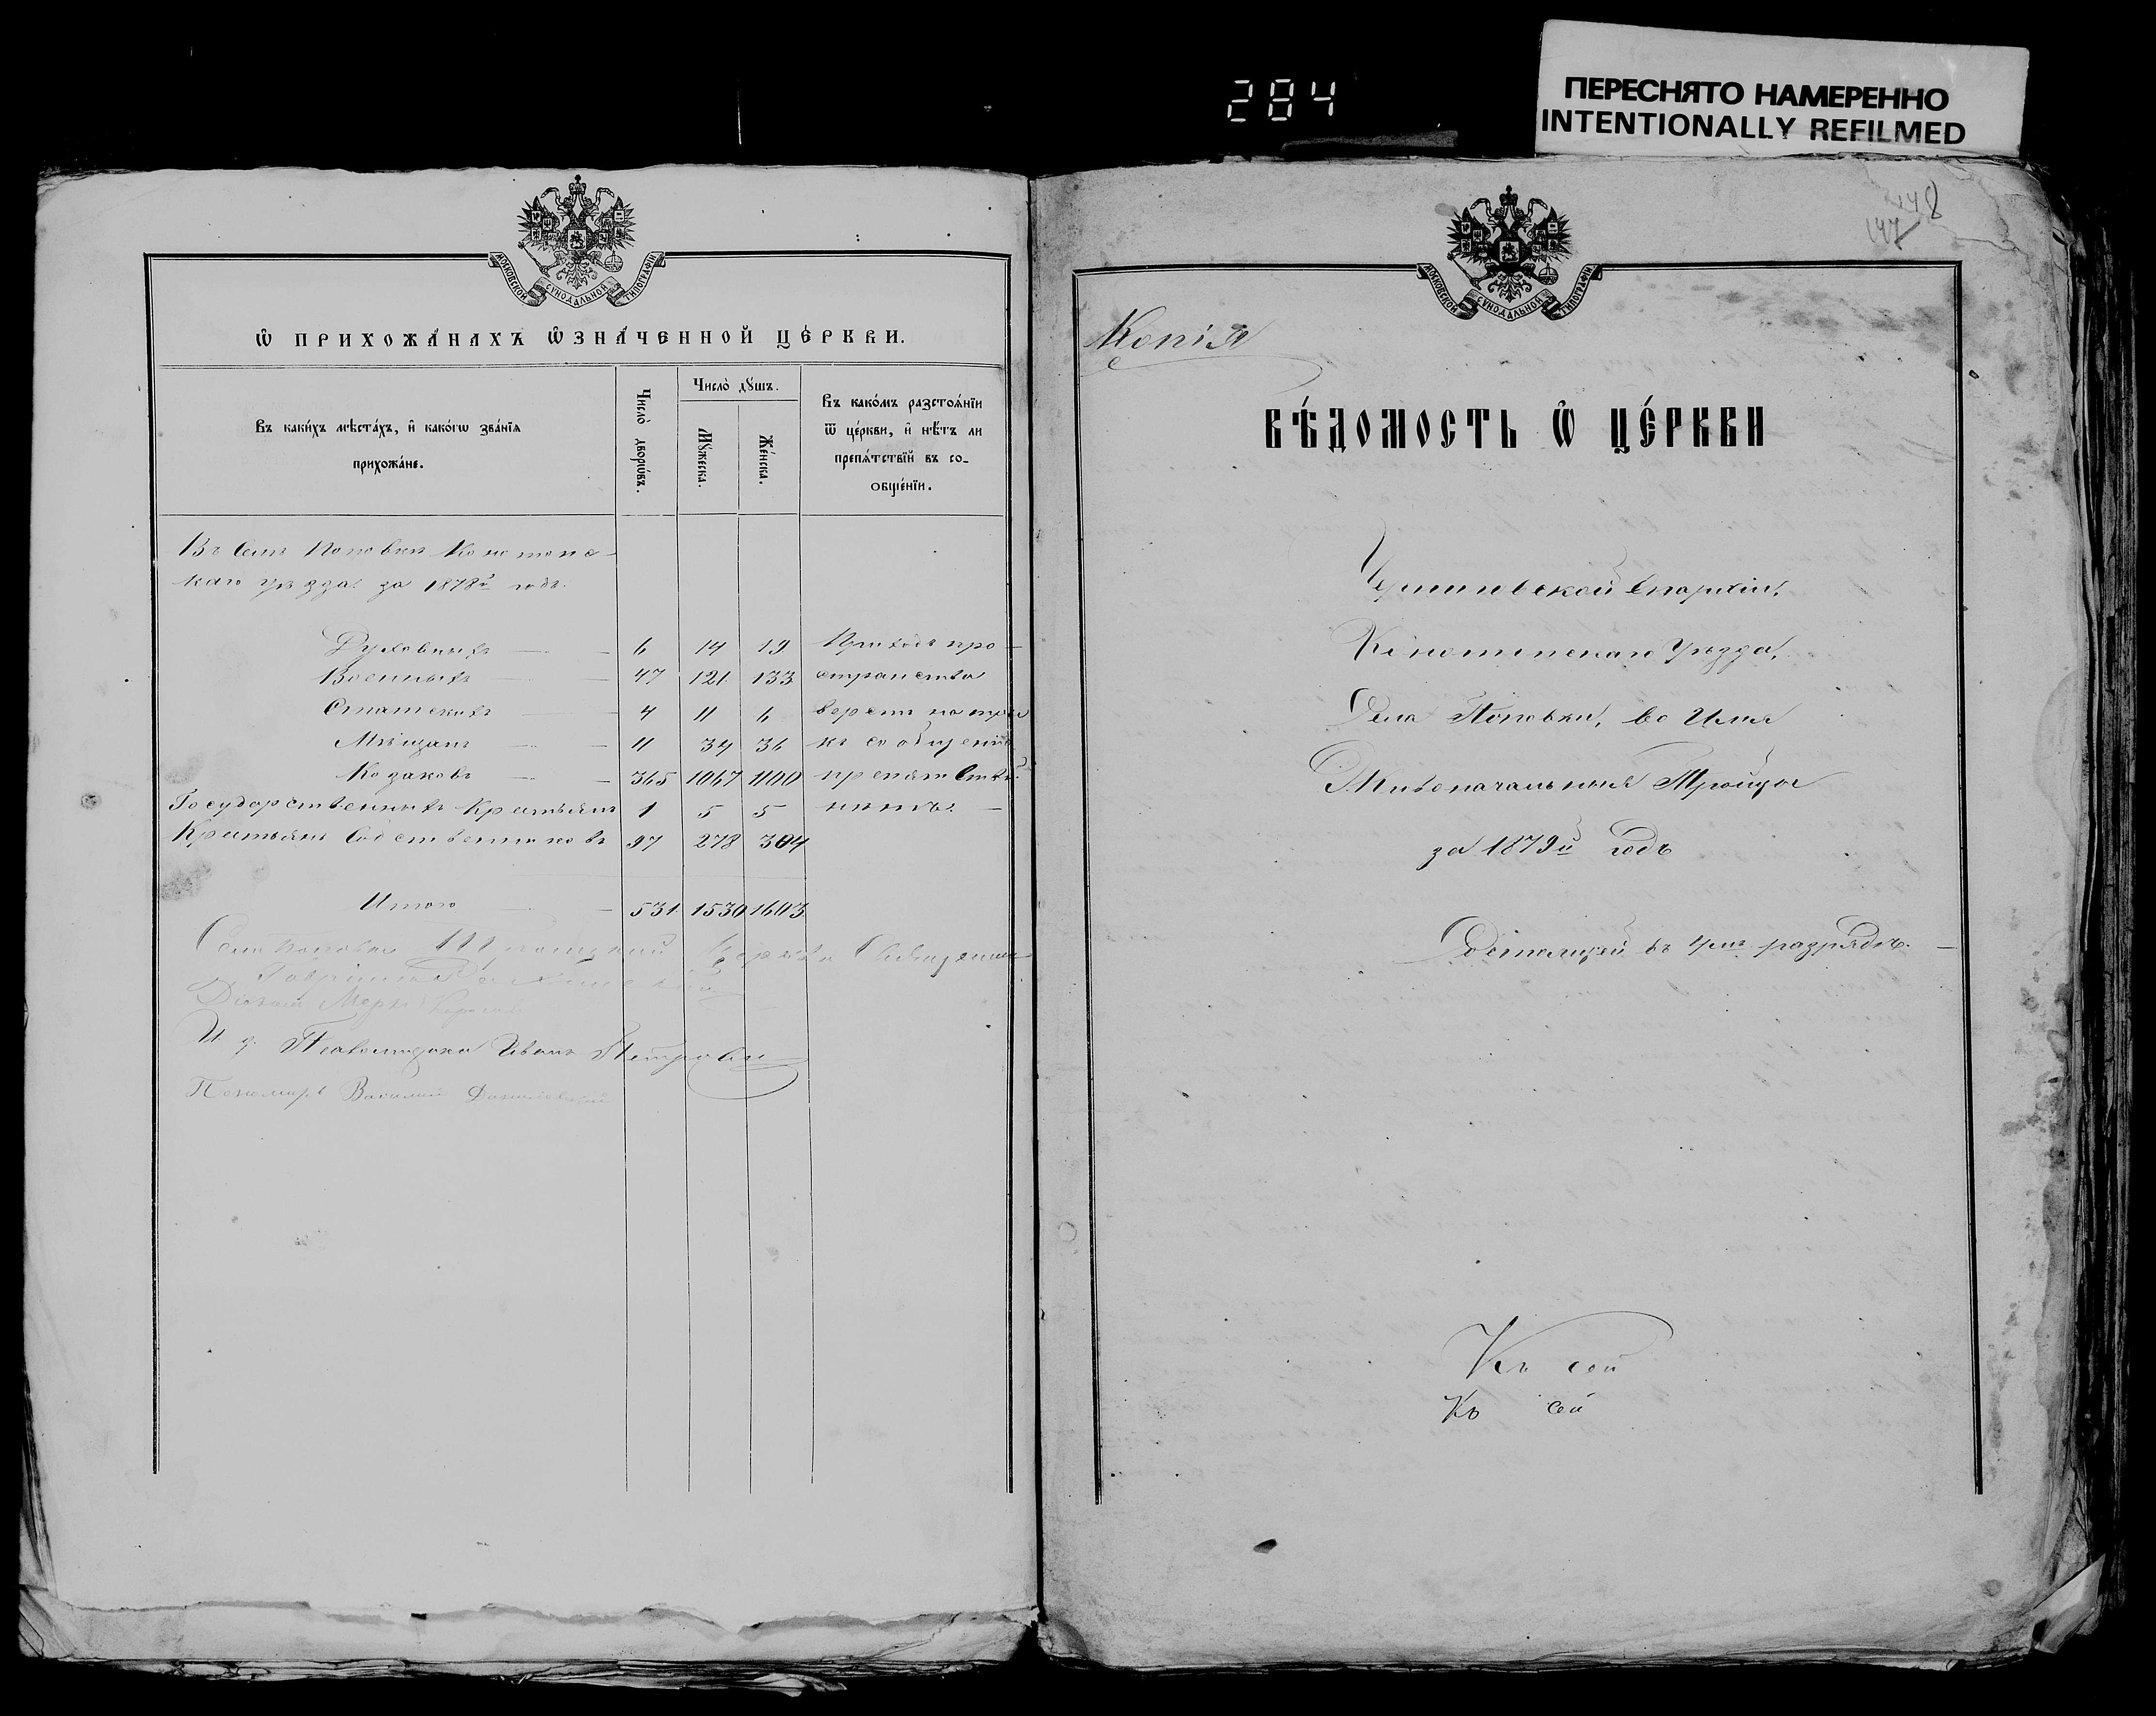 284
ПЕРЕСНЯТО НАМЕРЕННО
INTENTIONALLY REFILMED
МОСКОВСКОЙ СѴНОДАЛЬНОЙ ТИПОГРАФІИ
Ѡ ПРИХОЖА́НАХЪ Ѡ҆ЗНА́ЧЕННОЙ ЦЕ́РКВИ.
Въ каки́хъ мѣста́хъ, и҆ како́гѡ зва́нїѧ
прихожа́не.
Число̀ дворѡ́въ.
Число̀ дꙋшъ.
Мꙋ́жеска.
Же́нска.
Въ како́мъ разстоѧ́нїи
ѿ це́ркви, и҆ нѣ́тъ ли
препѧ́тствїй въ со-
ѻбще́нїи.
Въ Селѣ Поповки Конотопс-
каго уѣзда: за 1878й годъ.
Духовныхъ — — 6 14 19 Приходъ про-
Военныхъ — — 47 121 133 странства
Статскихъ — 4 11 6 верстъ на три
Мѣщанъ — — 11 34 36 къ сообщенію
Козаковъ — — 365 1067 1100 препятствій
Государственныхъ Крестьянъ 1 5 5 нѣтъ. —
Крестьянъ Собственниковъ 97 278 304
Итого — — 531. 1530 1603.
Села Поповки Троицкой Церкви Священникъ
Діаконъ
И. д. Псаломщика Иванъ Петровскій
Пономарь Василій
148
147
МОСКОВСКОЙ СѴНОДАЛЬНОЙ ТИПОГРАФІИ
Копія
ВѢ́ДОМОСТЬ Ѡ҆ ЦЕ́РКВИ
Черниговской Епархіи,
Конотопскаго Уѣзда,
Села Поповки, во Имя
Живоначальныя Троицы
за 1879й годъ
Состоящей въ 4мъ разрядѣ. —
Къ сей
Къ сей